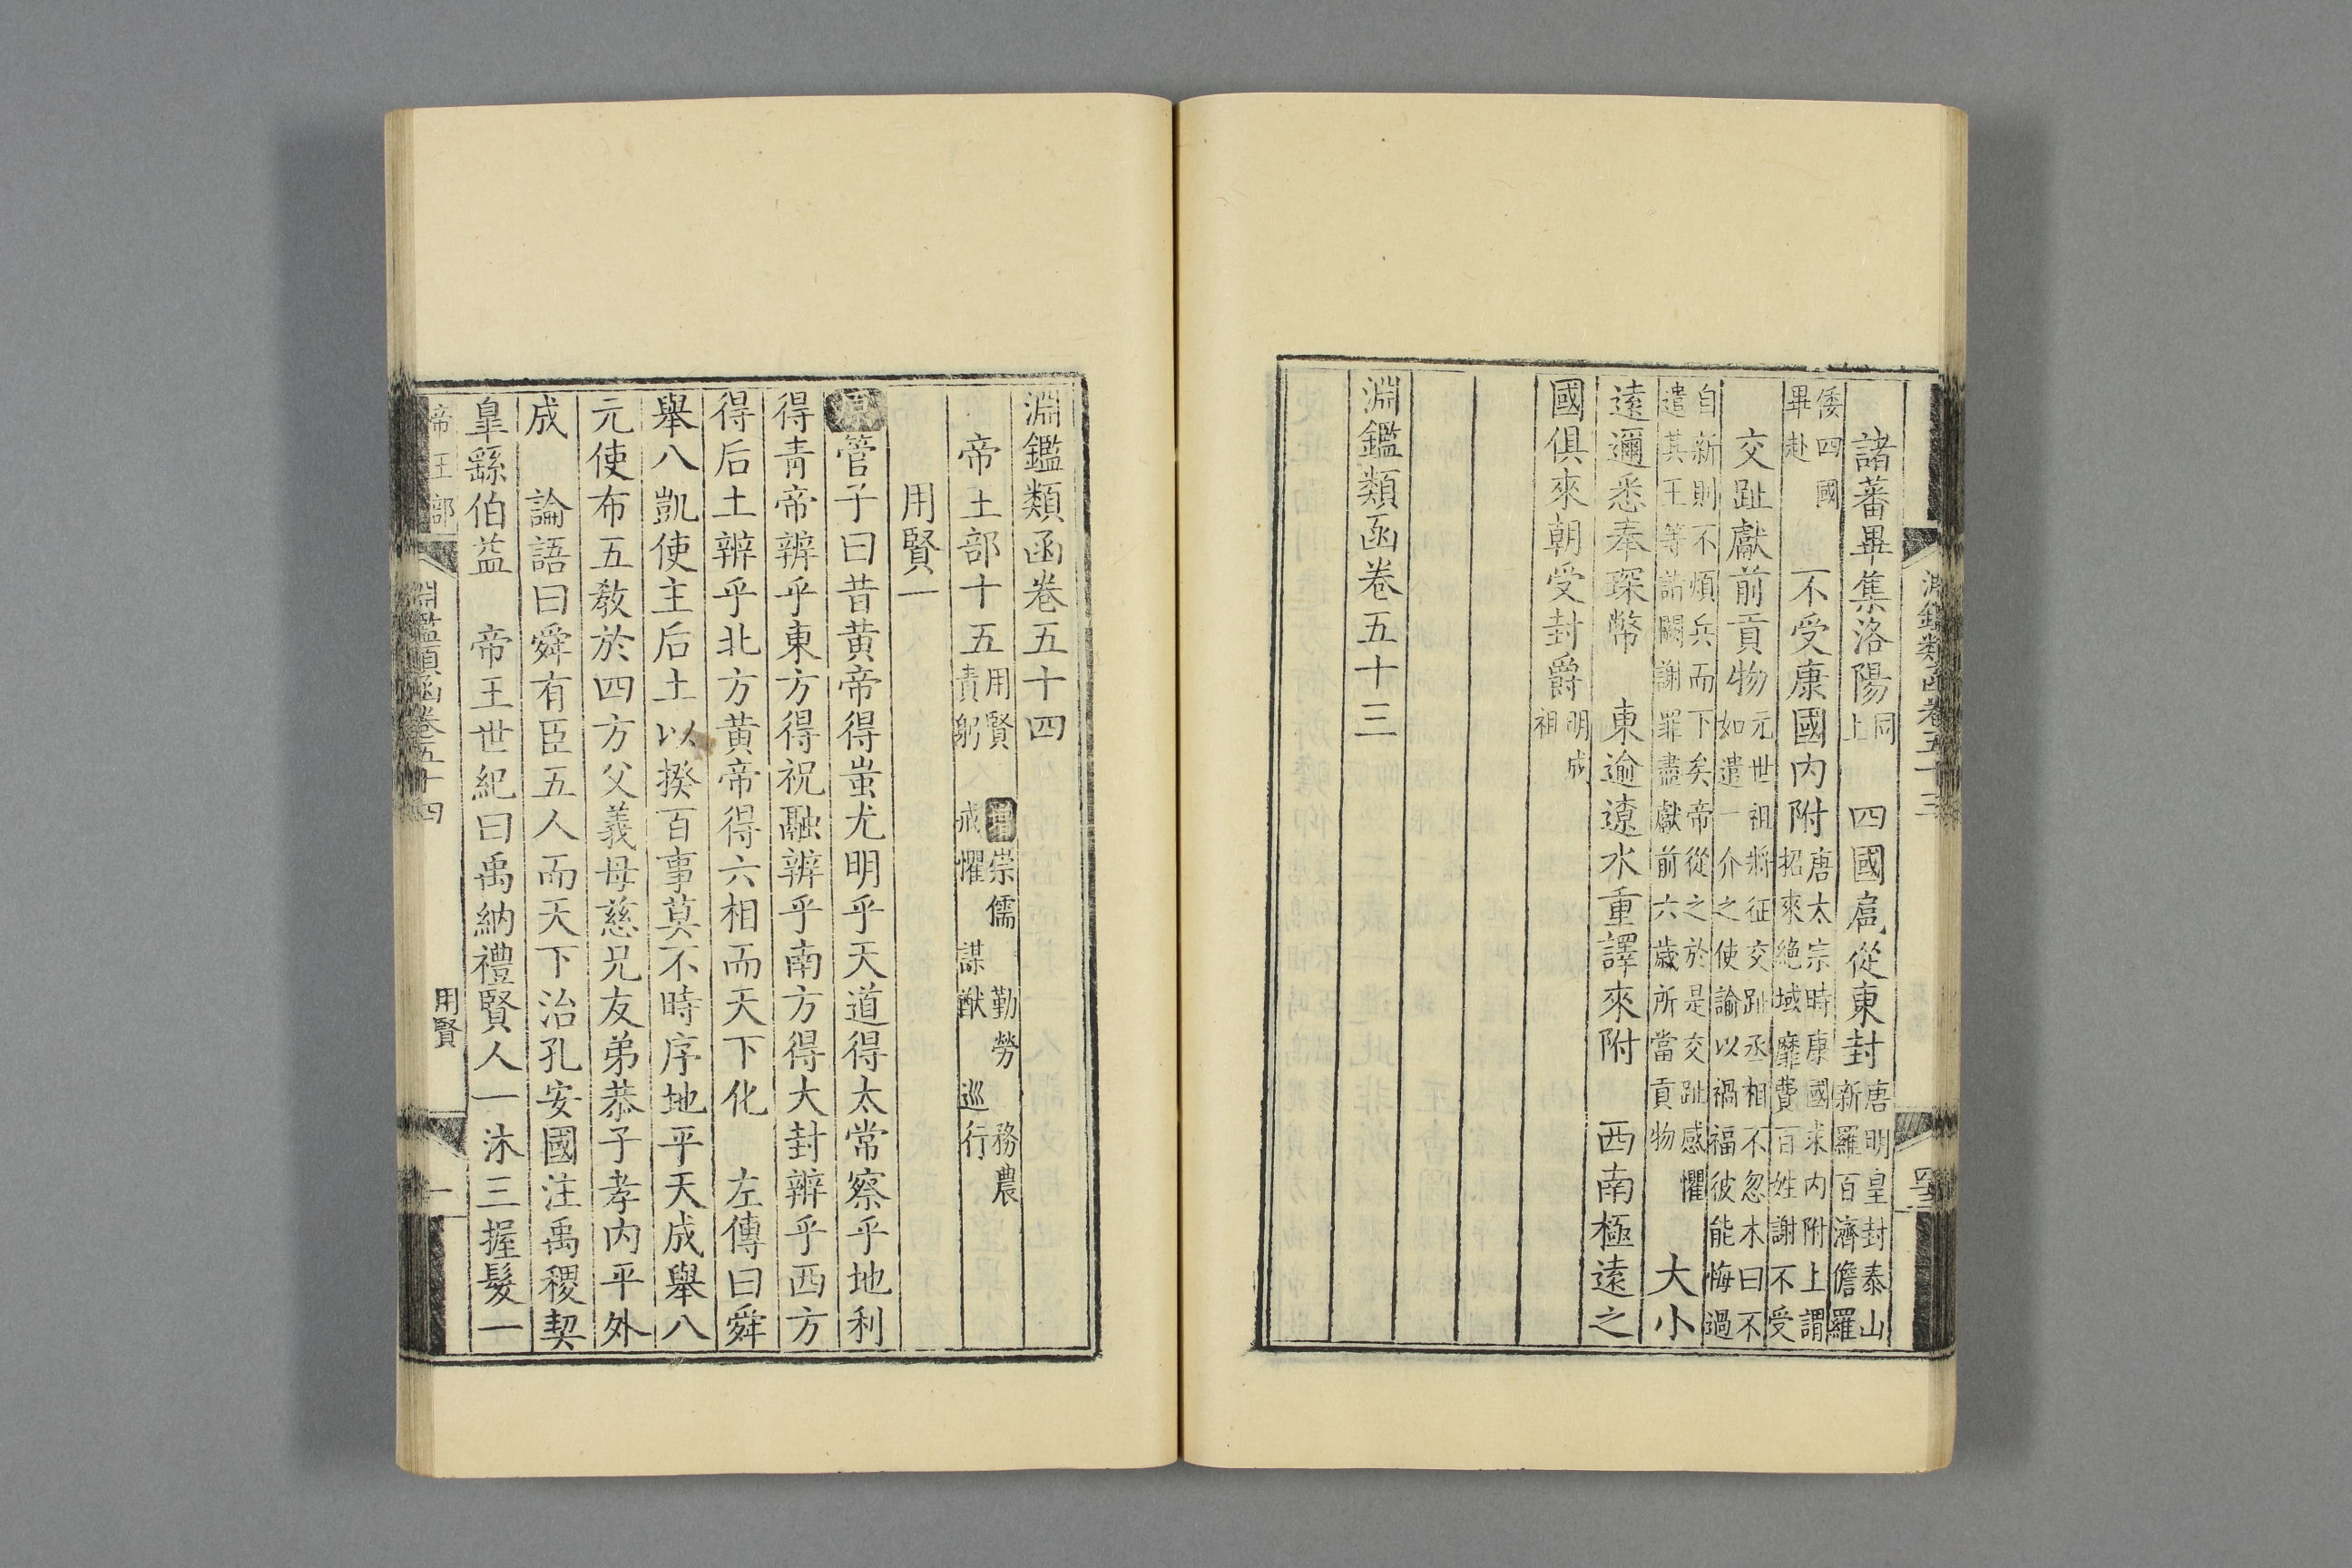 諸蕃畢集洛陽同上　四國扈從東封唐明皇封泰山新羅百濟儋羅
倭四國畢赴　不受康國内附唐太宗時康國求内附上謂招來絶域靡費百姓謝不受
交趾獻前貢物元世祖將征交趾丞相不忽木曰不如遣一介之使諭以禍福彼能悔過
自新則不煩兵而下矣帝從之於是交趾感懼遣其王等詣闕謝罪盡獻前六歲所當貢物　大小
遠邇悉奉琛幣　東逾遼水重譯來附　西南極遠之
國俱來朝受封爵明成祖
淵鑑類函卷五十三
淵鑑類函卷五十四
帝王部十五用賢　增崇儒　勤勞　務農責躬　戒懼　謀猷　巡行
用賢一
原管子曰昔黃帝得蚩尤明乎天道得太常察乎地利
得青帝辨乎東方得祝融辨乎南方得大封辨乎西方
得后土辨乎北方黃帝得六相而天下化　左傳曰舜
舉八凱使主后土以揆百事莫不時序地平天成舉八
元使布五教於四方父義母慈兄友弟恭子孝内平外
成　論語曰舜有臣五人而天下治孔安國注禹稷契
臯繇伯益　帝王世紀曰禹納禮賢人一沐三握髮一
帝王部　淵鑑類函卷五十四　用賢　一